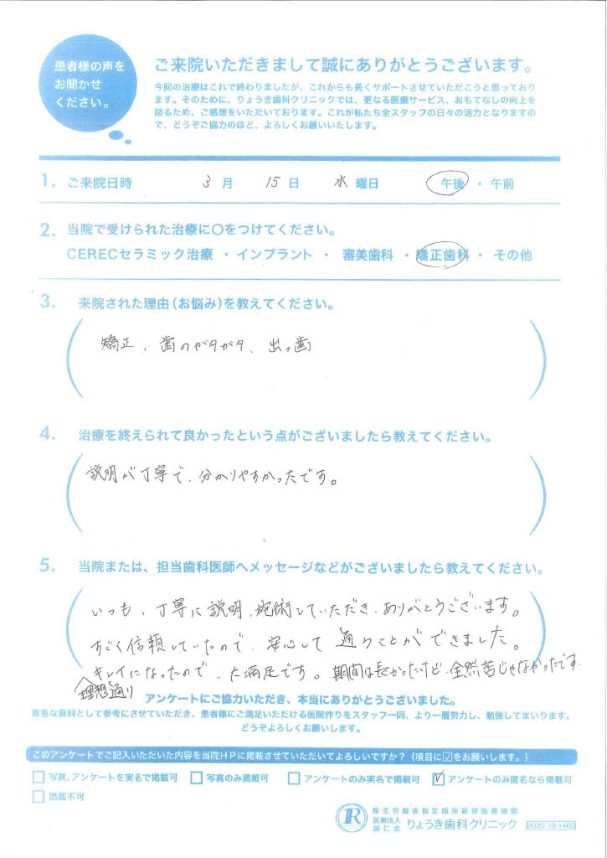 患者様の声を
お聞かせ
ください。
ご来院いただきまして誠にありがとうございます。
今回の治療はこれで終わりましたが、これからも長くサポートさせていただこうと思っており
ます。そのために、りょうき歯科クリニックでは、更なる医療サービス、おもてなしの向上を
図るため、ご感想をいただいております。これが私たち全スタッフの日々の活力となりますの
で、どうぞご協力のほど、よろしくお願いいたします。
1. ご来院日時 3月 15日 水曜日 午後・午前
2. 当院で受けられた治療に○をつけてください。
CERECセラミック治療 ・ インプラント ・ 審美歯科 ・ 矯正歯科 ・ その他
3. 来院された理由（お悩み）を教えてください。
矯正、歯のガタガタ、出っ歯
4. 治療を終えられて良かったという点がございましたら教えてください。
説明が丁寧で、分かりやすかったです。
5. 当院または、担当歯科医師へメッセージなどがございましたら教えてください。
いつも、丁寧に説明、施術していただき、ありがとうございます。
すごく信頼していたので、安心して通うことができました。
キレイになったので、大満足です。期間は長かったけど、全然苦じゃなかったです
理想通り
アンケートにご協力いただき、本当にありがとうございました。
貴重な資料として参考にさせていただき、患者様にご満足いただける医院作りをスタッフ一同、より一層努力し、勉強してまいります。
どうぞよろしくお願いします。
このアンケートでご記入いただいた内容を当院HPに掲載させていただいてよろしいですか？（項目に☑をお願いします。）
□写真、アンケートを実名で掲載可 □写真のみ掲載可 □アンケートのみ実名で掲載可 ☑アンケートのみ匿名なら掲載可
□掲載不可
厚生労働省指定臨床研修医療機関
医療法人
誠仁会 りょうき歯科クリニック